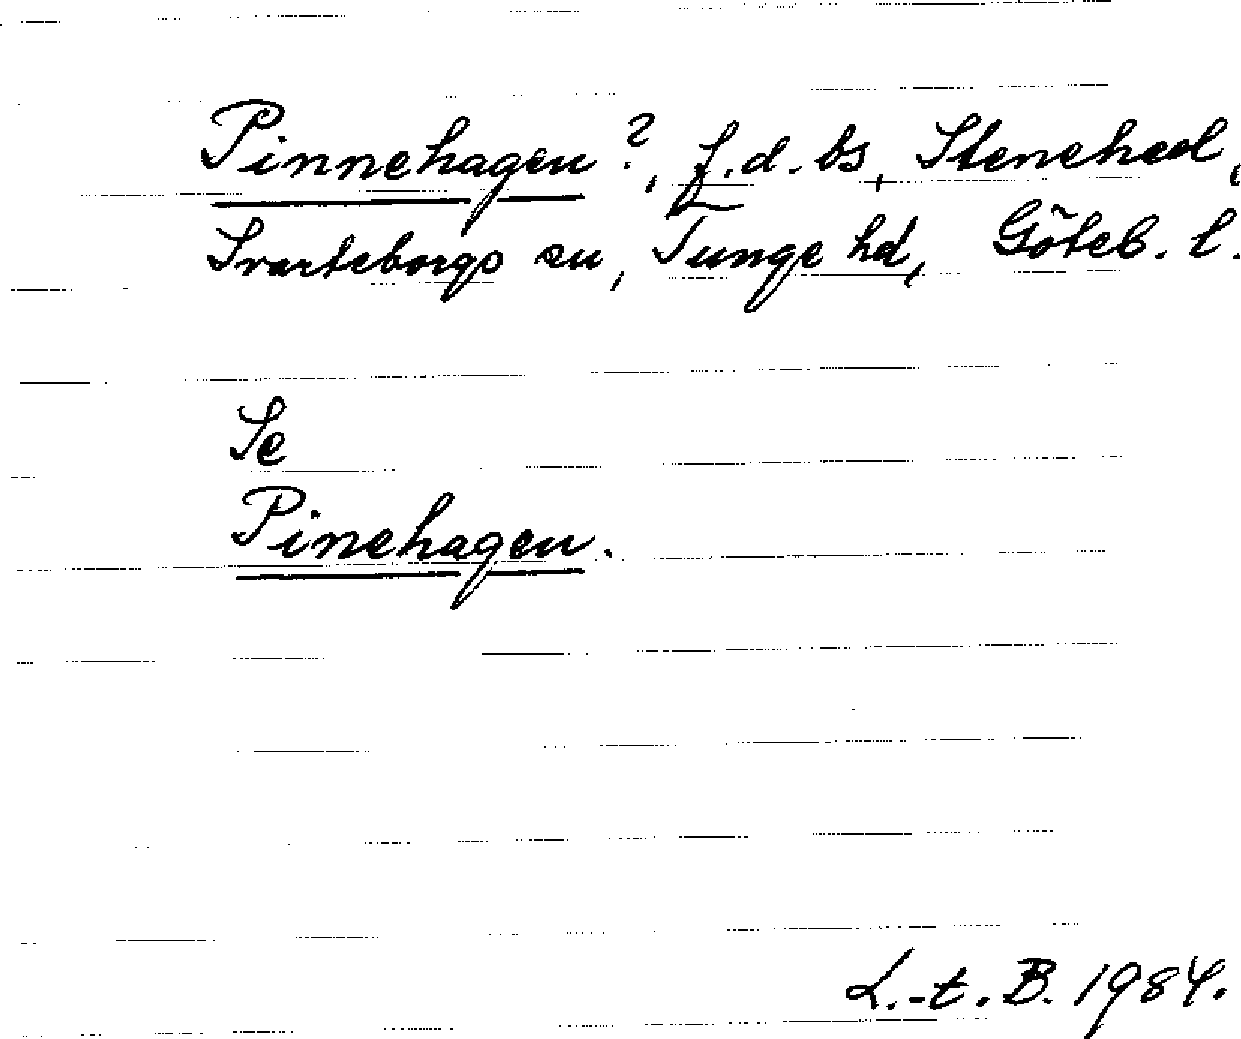 Pinnehagen?, f.d. bs, Stenehed,
Svarteborgs sn, Tunge hd, Göteb. l.
Se
Pinehagen.
L.-t. B. 1984.